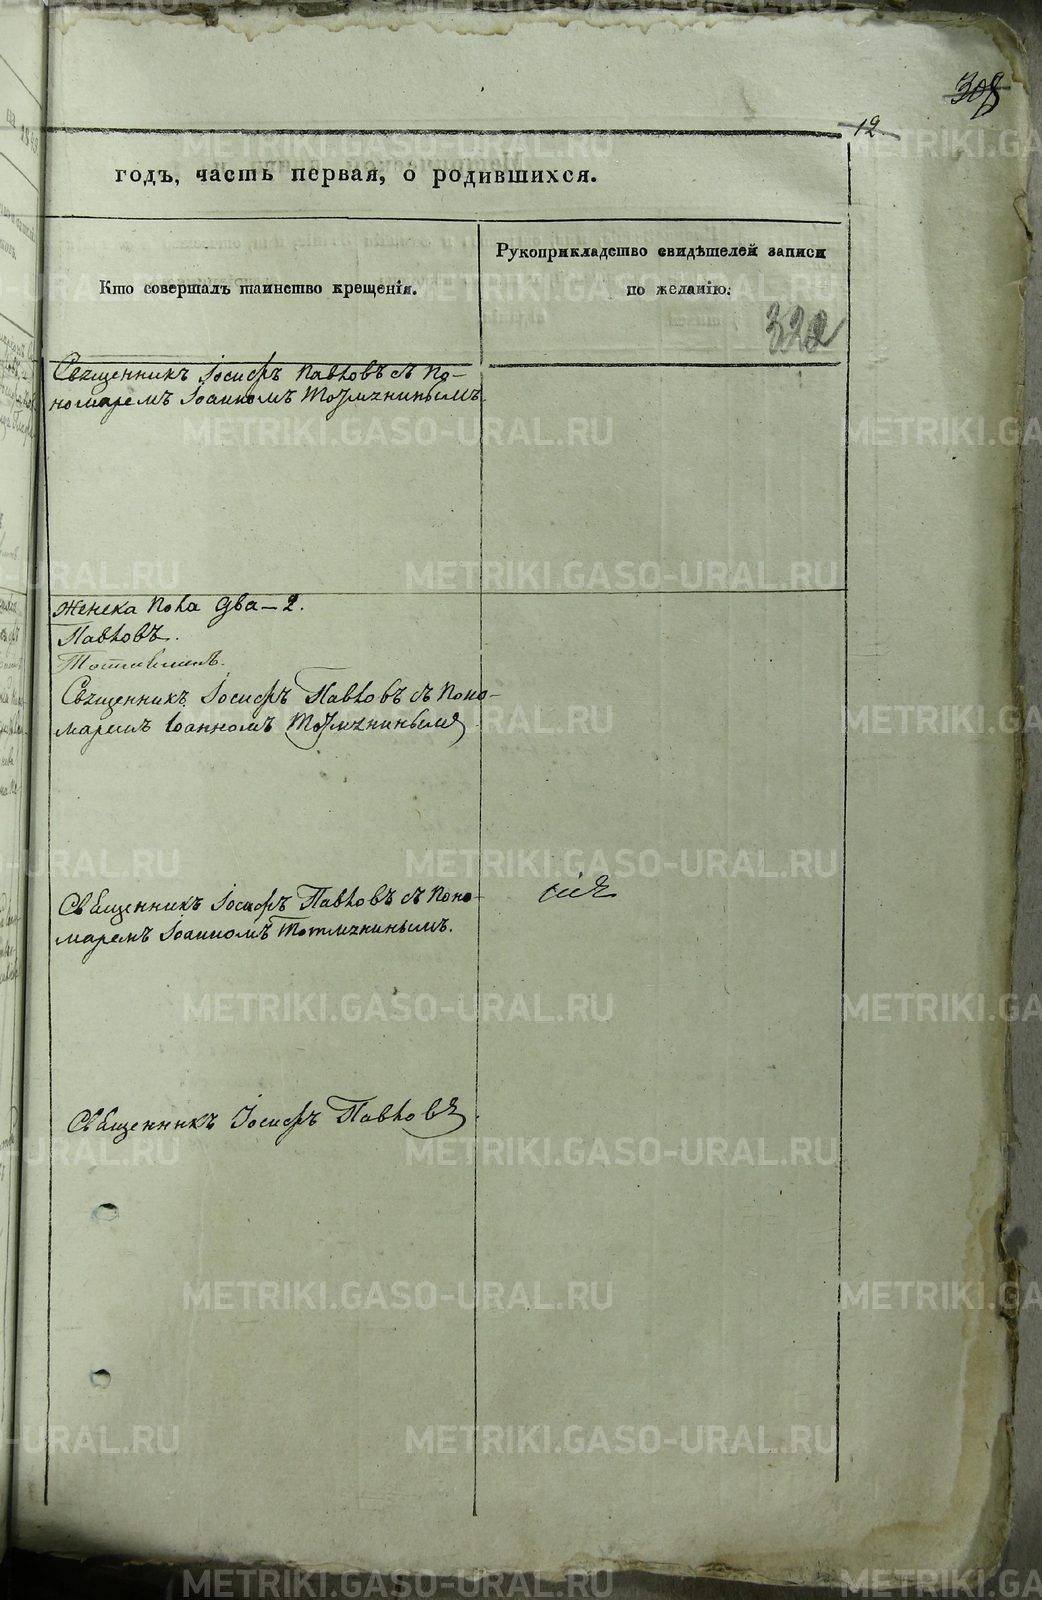 308
12
годъ, часть первая, о родившихся.
Кто совершалъ таинство крещенія.
Рукоприкладство свидѣтелей записи
по желанію:
322
Священникъ Іосифъ Павловъ съ По-
номаремъ Іоанномъ
Женска пола два - 2.
Павловъ.
Священникъ Іосифъ Павловъ съ Поно-
маремъ Іоанномъ
Священникъ Іосифъ Павловъ съ Поно-
маремъ Іоанномъ
сія
Священникъ Іосифъ Павловъ.
METRIKI.GASO-URAL.RU